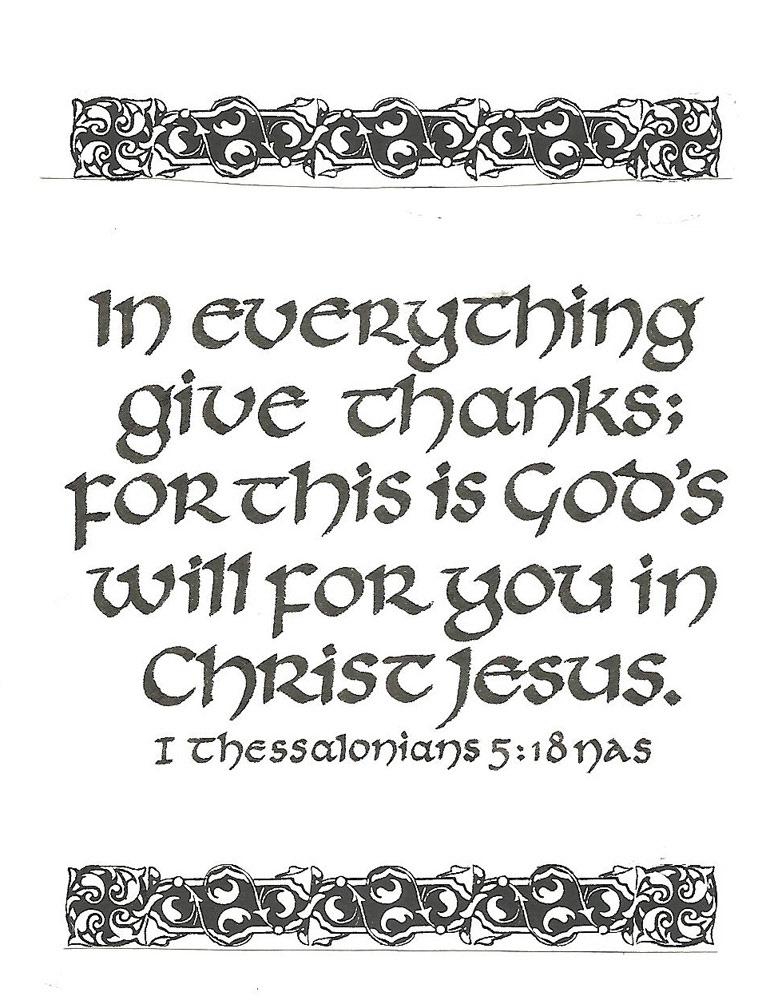 In everything
give thanks;
for this is God's
will for you in
Christ Jesus.
I Thessalonians 5:18 nas